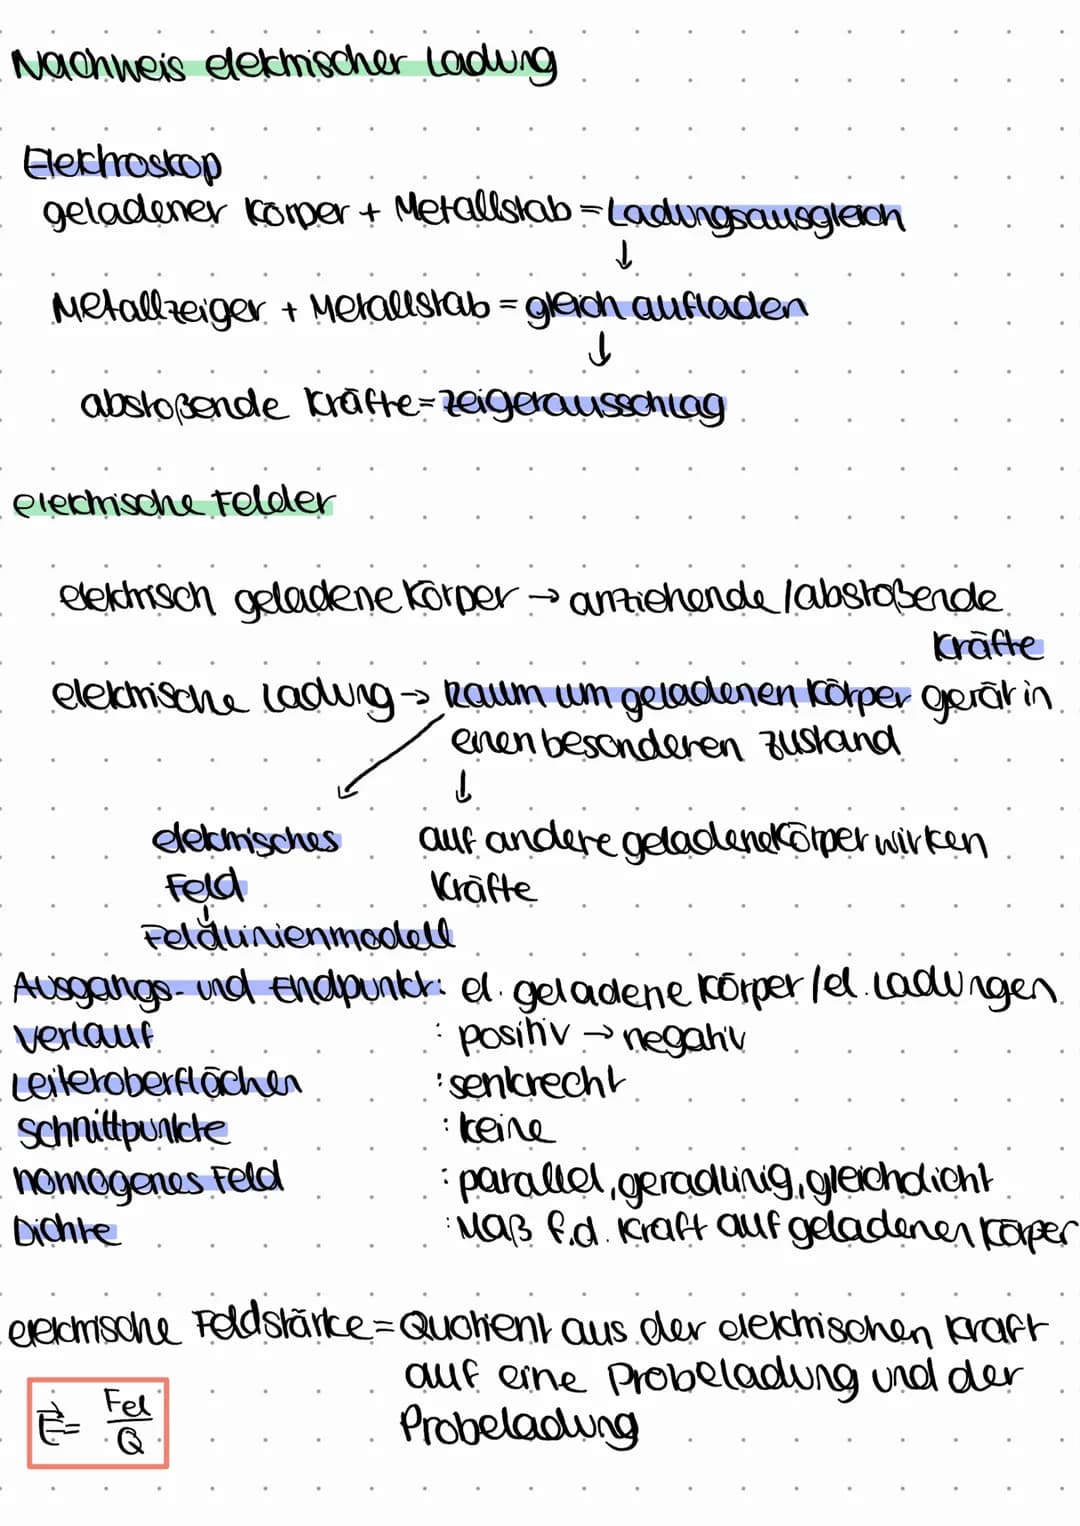 Nachweis elektrischer Ladung
Elektroskop
geladener Körper + Metallstab = Ladungsausgleich
↓
Metallzeiger + Metallstab = gleich aufladen
↓
abstoßende Kräfte = Zeigerausschlag
elektrische Felder
elektrisch geladene Körper → anziehende / abstoßende
Kräfte
elektrische Ladung → Raum um geladenen Körper gerät in
einen besonderen Zustand
↓
elektrisches auf andere geladene Körper wirken
Feld Kräfte
↓
Feldlinienmodell
Ausgangs- und Endpunkt: el. geladene Körper / el. Ladungen
Verlauf : positiv → negativ
Leiteroberflächen : senkrecht
Schnittpunkte : keine
homogenes Feld : parallel, geradlinig, gleichdicht
Dichte : Maß f.d. Kraft auf geladenen Körper
elektrische Feldstärke = Quotient aus der elektrischen Kraft
auf eine Probeladung und der
Probeladung
E⃗ = Fel / Q